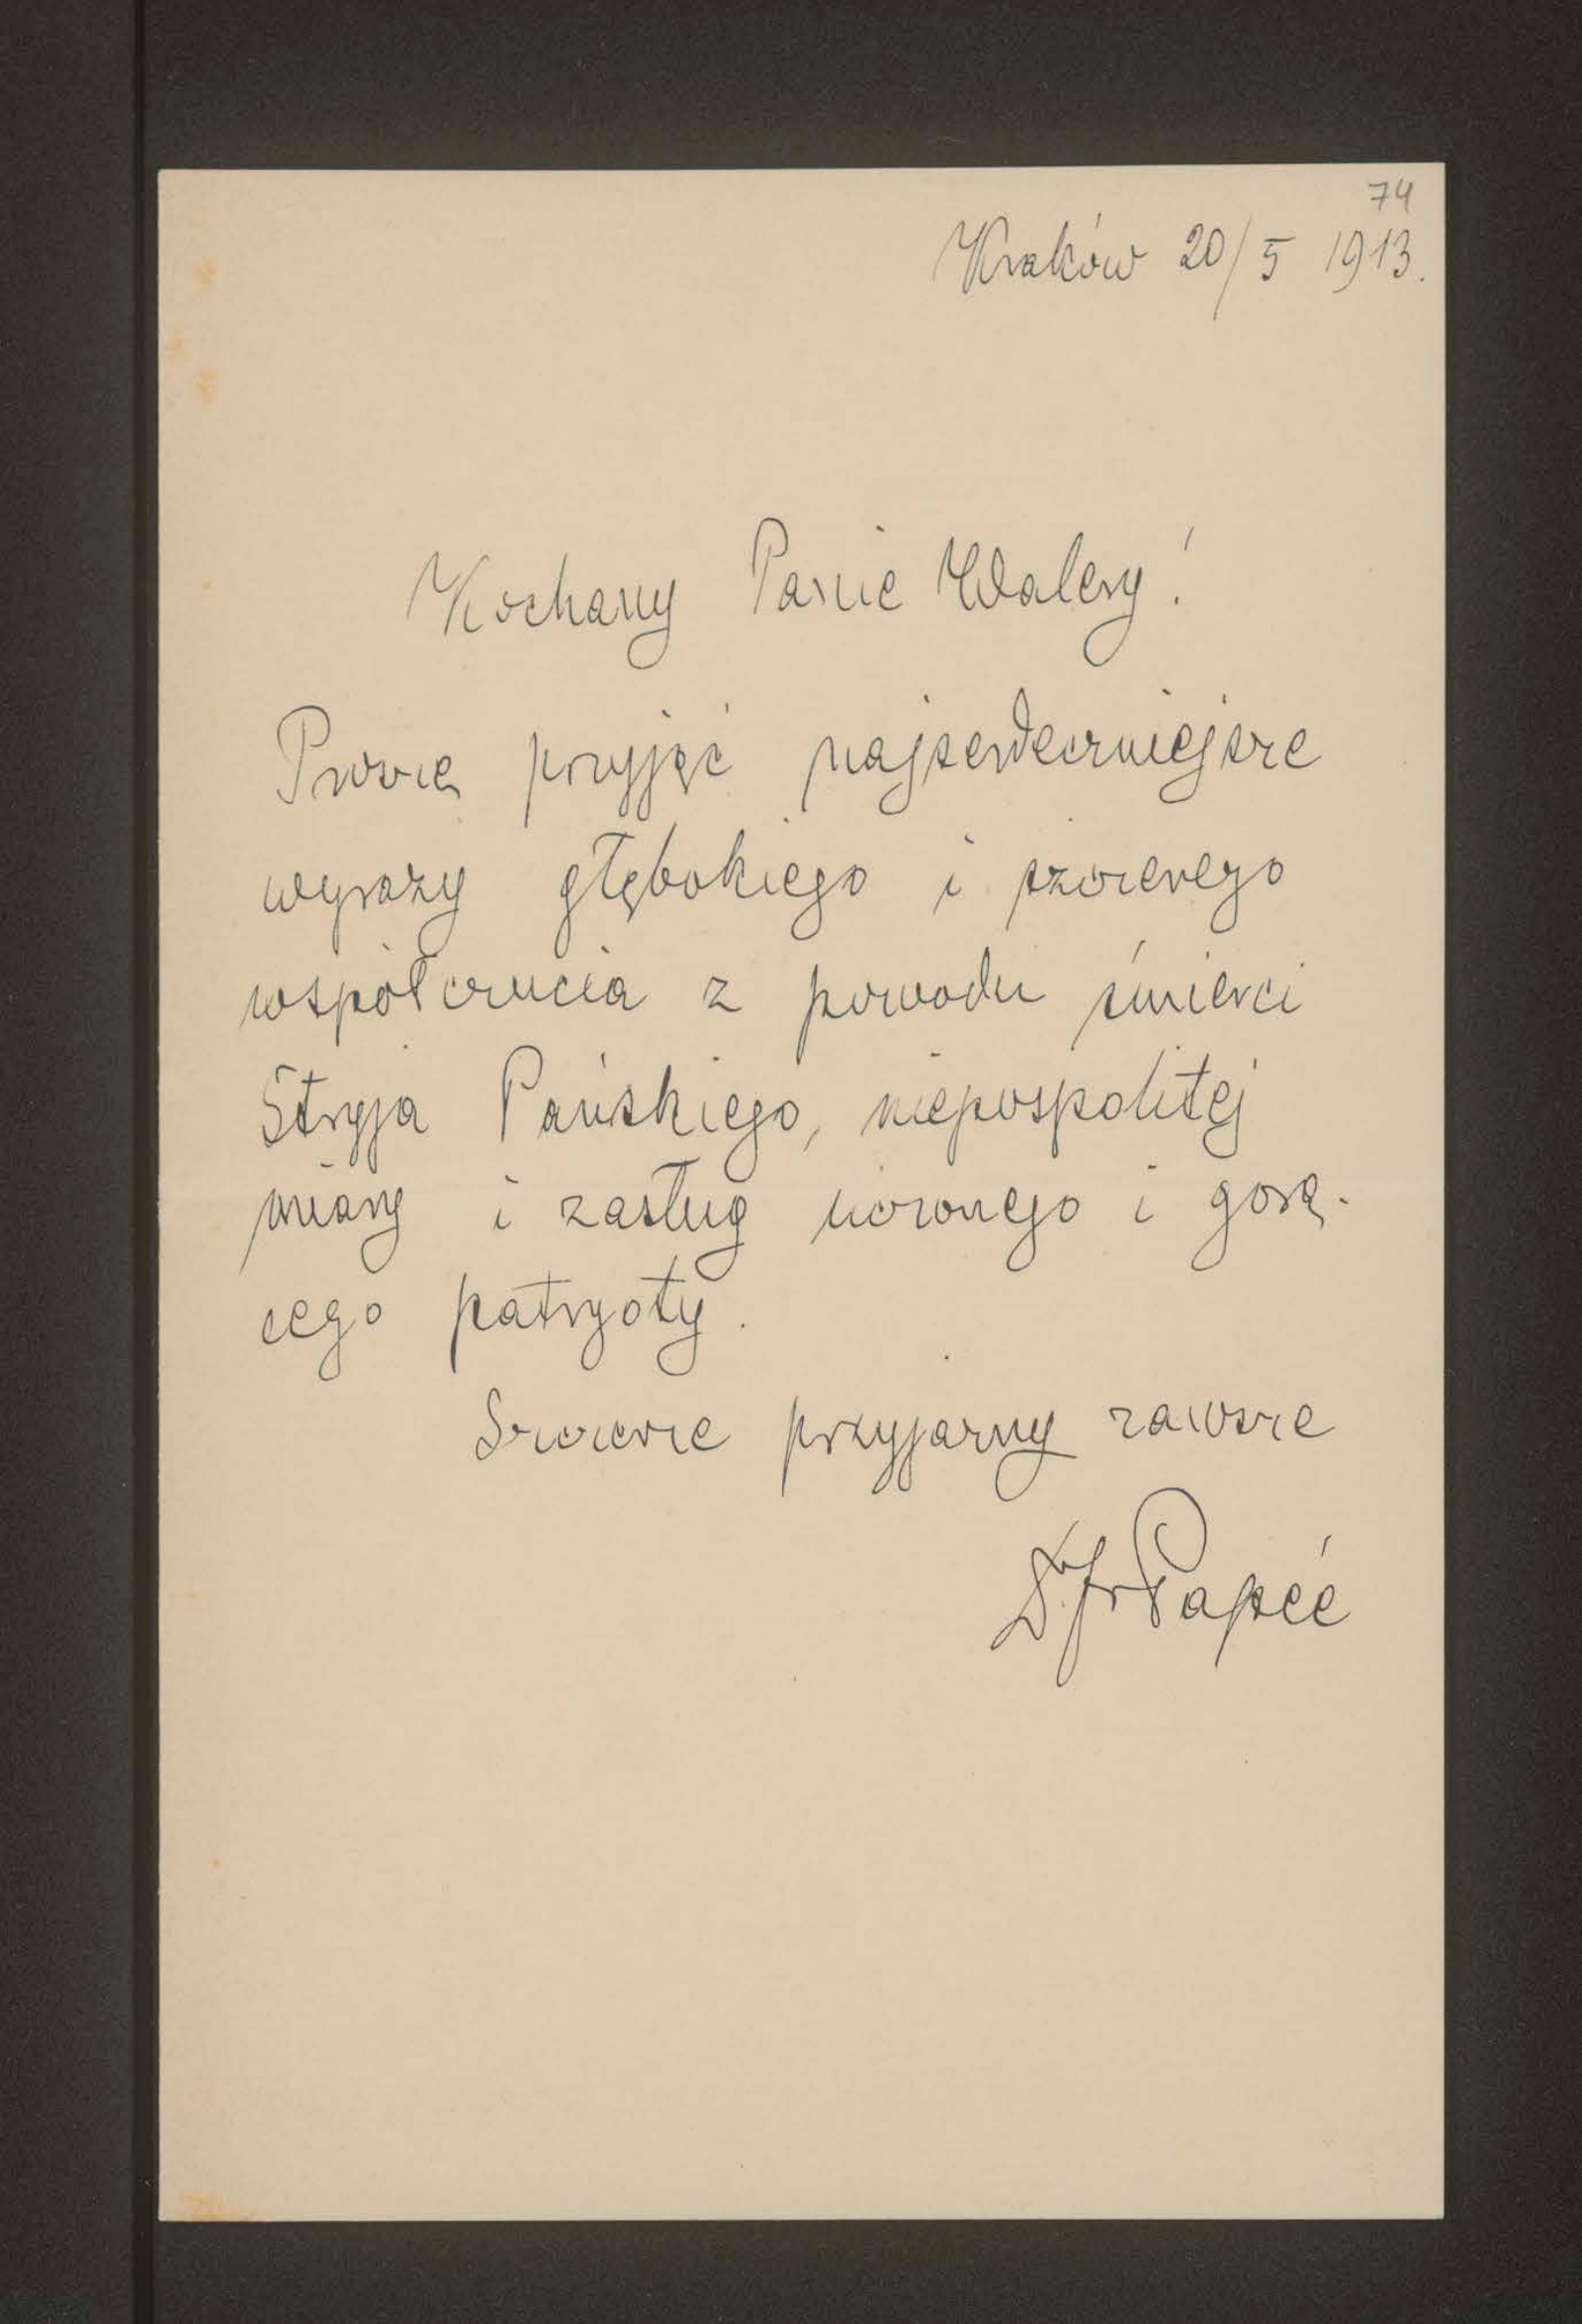 74
Kraków 20/5 1913.
Kochany Panie Walery!
Proszę przyjąć najserdeczniejsze
wyrazy głębokiego i szczerego
współczucia z powodu śmierci
Stryja Pańskiego, niepospolitej
miary i zasług uczonego i gorą-
cego patryoty.
Szczerze przyjazny zawsze
Dr Fr Papée